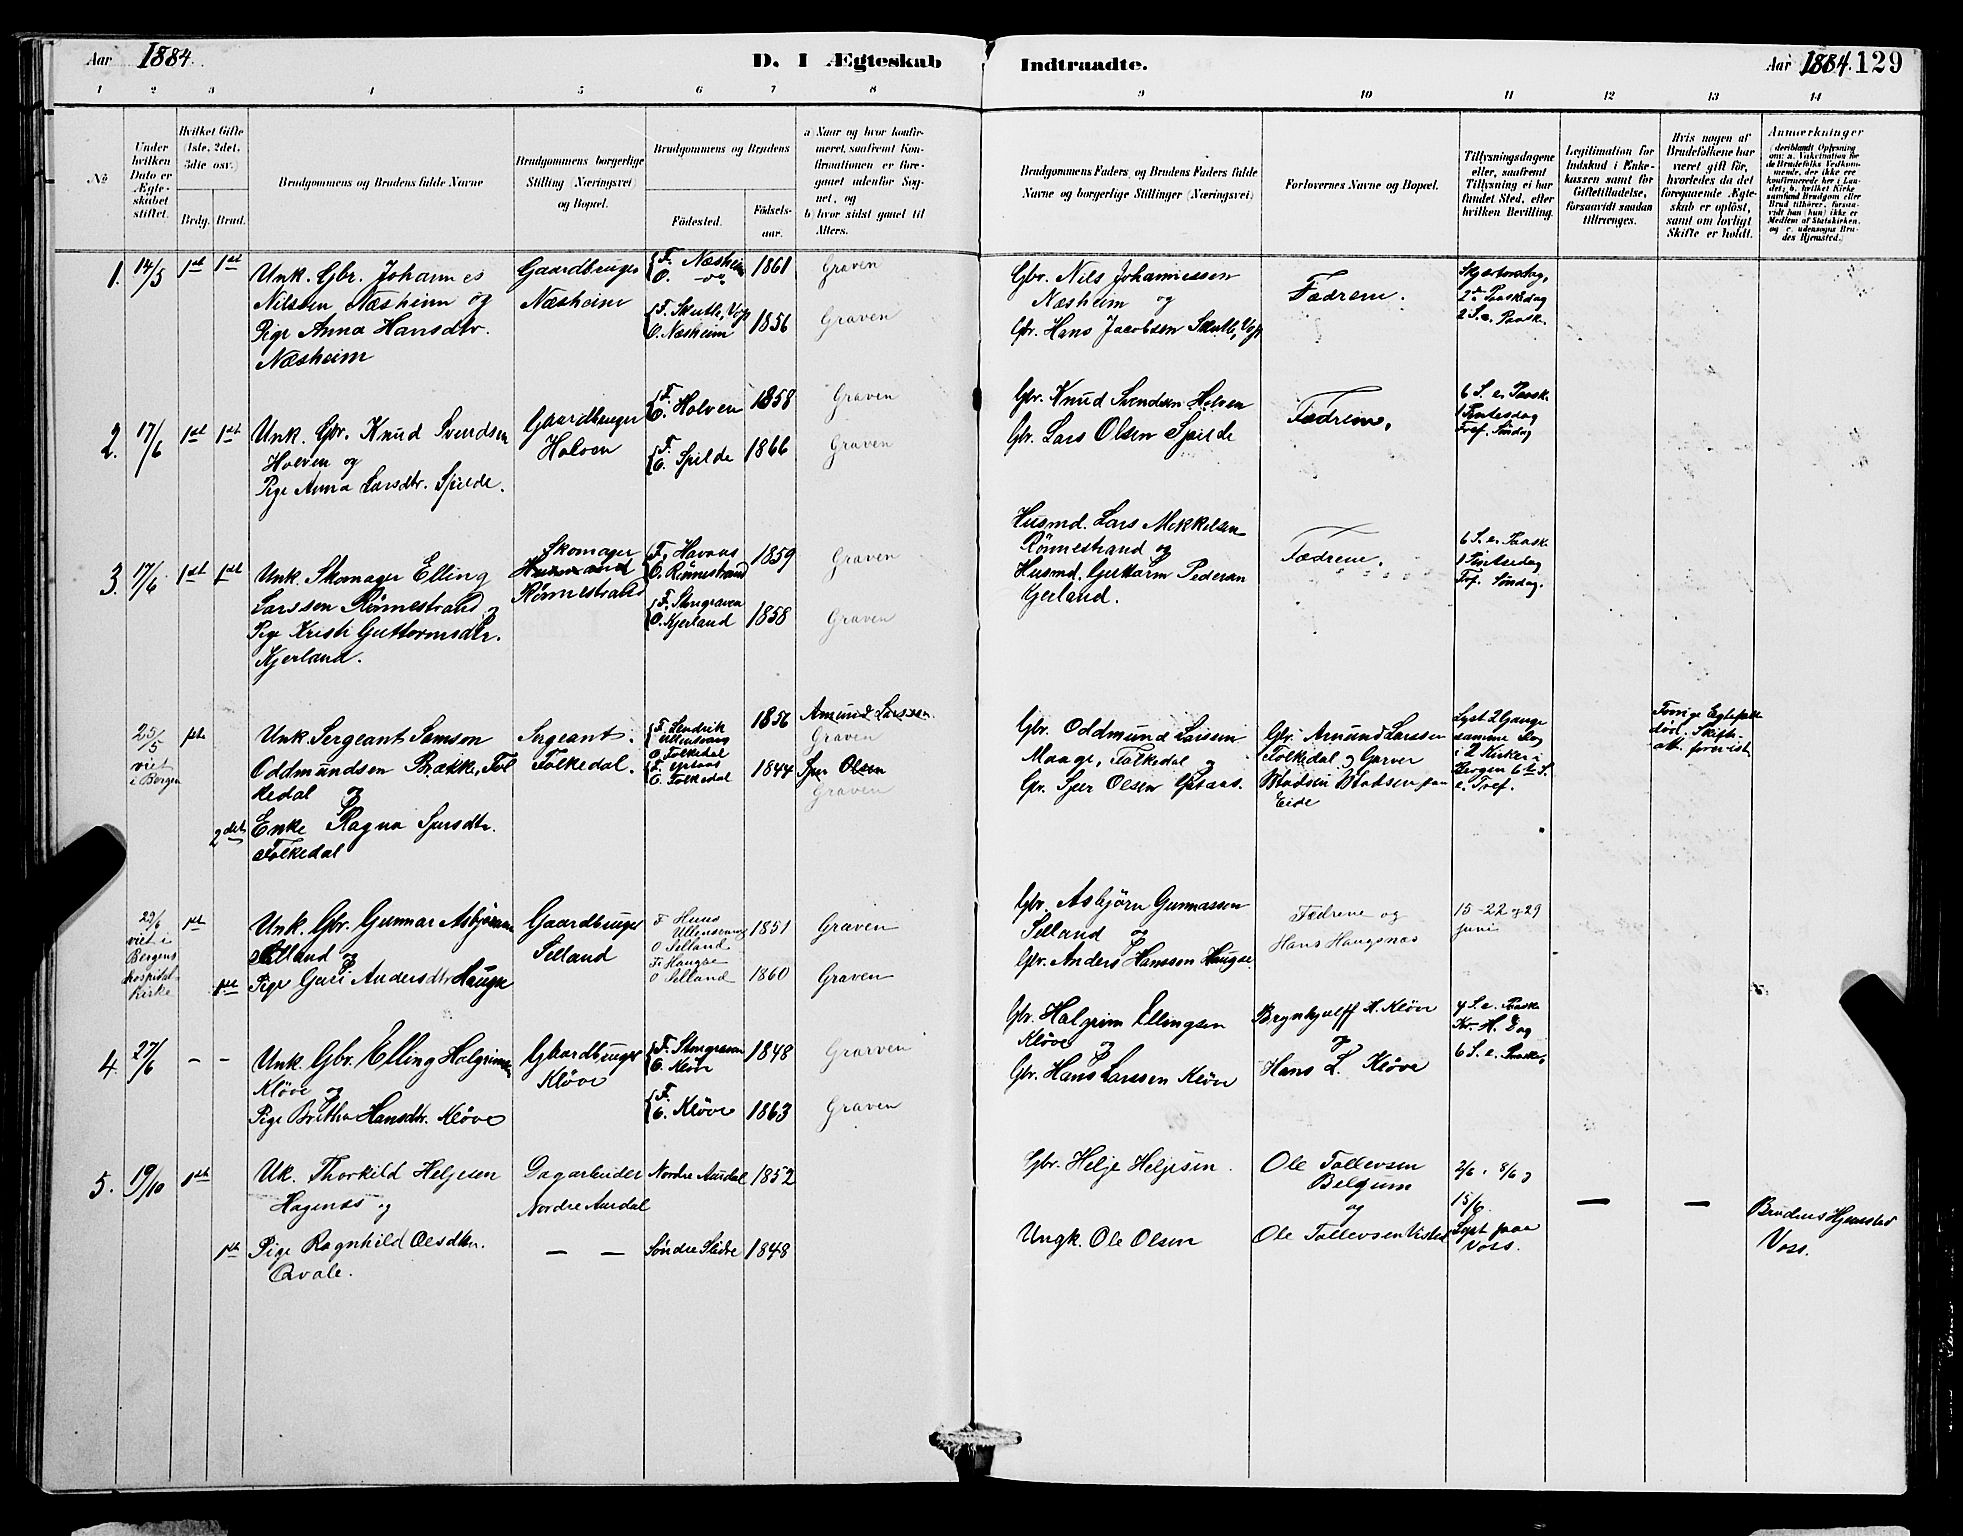 Aar 1884.
D. I Ægteskab
Indtraadte.
Aar 1884. 129
1 2 3 4 5 6 7 8
9 10 11 12 13 14
No
Under hvilken Dato er Ægteskabet stiftet.
Hvilket Gifte (1ste, 2det, 3die osv.)
Brdg. Brud.
Brudgommens og Brudens fulde Navne
Brudgommens borgerlige Stilling (Næringsvei) og Bopæl.
Brudgommens og Brudens
Fødested.
Fødselsaar.
a) Naar og hvor konfirmeret, saafremt Konfirmationen er foregaaet udenfor Sognet, og
b) hvor sidst gaaet til Alters.
Brudgommens Faders og Brudens Faders fulde Navne og borgerlige Stillinger (Næringsvei)
Forlovernes Navne og Bopæl.
Tillysningsdagene eller, saafremt Tillysning ei har fundet Sted, efter hvilken Bevilling.
Legitimation for Indskud i Enkekassen samt for Giftetilladelse, forsaavidt saadan tiltrænges.
Hvis nogen af Brudefolkene har været gift før, hvorledes da det foregaaende Ægteskab er opløst, samt om lovligt Skifte er holdt.
Anmærkninger (deriblandt Oplysning om: a. Vakcination for de Brudefolks Vedkommende, der ikke ere konfirmerede her i Landet; b. hvilket Kirkesamfund Brudgom eller Brud tilhører, forsaavidt han (hun) ikke er Medlem af Statskirken, og c. udensogns Brudes Hjemsted.)
1. 14/5 1ste 1ste
Unk. Gbr. Johannes
Nilssen Næsheim og
Pige Anna Hansdtr.
Næsheim
Gaardbruger
Næsheim
F. Næsheim
O. do
1861 Graven
F. Skutle, Vos
O. Næsheim
1856 Graven
Gbr. Nils Johannessen
Næsheim og
Gbr. Hans Jacobsen Skutle, Vos
Fædrene.
Skjærtorsdag,
2den Paaskedag
2 S. e. Paask.
2. 17/6 1ste 1ste
Unk. Gbr. Knud Svendsen
Holven og
Pige Anna Larsdtr. Spilde.
Gaardbruger
Holven
F.
O. Holven
1858 Graven
F.
O. Spilde
1866 Graven
Gbr. Knud Svendsen Holven
Gbr. Lars Olsen Spilde
Fædrene.
6 S. e. Paask.
1 Pintsedag
Tref. Søndag
3. 17/6 1ste 1ste
Unk. Skomager Elling
Larssen Rönnestrand og
Pige Kristi Guttormsdtr.
Kjerland.
Skomager
Husmand
Rönnestrand
F. Havaas
O. Rönnestrand
1859 Graven
F. Stengraven
O. Kjerland
1858 Graven
Husmd. Lars Mikkelsen
Rönnestrand og
Husmd. Guttorm Pedersen
Kjerland.
Fædrene.
6 S. e. Paask
1 Pintsedag
Tref. Søndag.
25/5
viet
i Bergen
1ste
2det
Unk. Sergeant Samson
Oddmundsen Brække, Fol
kedal og
Enke Ragna Sjursdtr.
Folkedal
Sergeant.
Folkedal.
F.
Ullensvang
O. Folkedal
F. Ystaas
O. Folkedal
1856 Amund Larssen
Graven
1844 Sjur Olsen
Graven
Gbr. Oddmund Larssen
Maage, Folkedal og
Gbr. Sjur Olsen Ystaas.
Gbr. Amund Larssen
Folkedal og Garver
Madsen paa
Eide
Lyst 2 Gange
samme Dag
i 2 Kirker i
Bergen 6te S.
e. Tref.
Forrige Egtefælle
död. Skifte-
att. forevist
29/6
viet i
Bergens
Hospitals
Kirke
1ste
1ste
Unk. Gbr. Gunnar Asbjörnsen
Selland og
Pige Guri Andersdtr Hauge
Gaardbruger
Selland
F Huus
Ullensvang
O Selland
1851 Graven
F. Hauge
O Selland
1860 Graven
Gbr. Asbjörn Gunnarssen
Selland og
Gbr. Anders Hanssen Hauge.
Fædrene og
Hans Haugsnæs
15 - 22 og 29
Juni
4. 27/6 - -
Unk. Gbr. Elling Halgrimsen
Kløve og
Pige Britha Hansdtr. Kløve
Gaardbruger
Kløve
F. Stengraven
O. Kløve
1848 Graven
F.
O. Kløve
1863 Graven
Gbr. Halgrim Ellingsen
Kløve og
Gbr. Hans Larssen Kløve
Brynhjulff H. Kløve
og
Hans L. Kløve
4 S. e. Paask.
Kr. H. Dag
6 S. e. Paaske,
5. 19/10 1ste
1ste
Uk. Thorkild Heljesen
Hagenæs og
Pige Ragnhild Olsdtr.
Qvale.
Dagarbeider
Nordre Aurdal
— —
Nordre Aurdal 1852
Søndre Slidre 1848
Gbr. Helje Heljesen.
Ungk. Ole Olsen
Ole Tollevsen
Belgum
og
Ole Tollevsen
2/6, 8/6 og
15/6.
Lyst paa
Voss.
— —
Brudens Hjemsted
Voss.